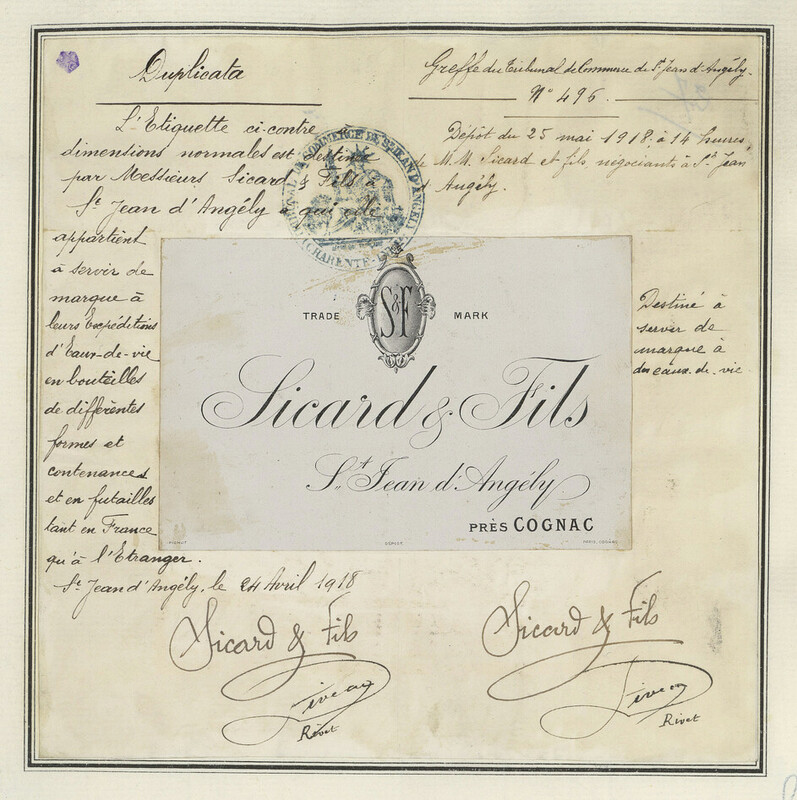 Duplicata
L'Etiquette ci-contre
dimensions normales est destinée
par Messieurs Sicard & Fils à
St Jean d'Angély à qui elle
appartient
à servir de
marque à
leurs Expéditions
d'Eaux-de-vie
en bouteilles
de différentes
formes et
contenances
et en futailles
tant en France
qu'à l'Etranger.
St Jean d'Angély, le 24 Avril 1918
Sicard & Fils
Rivet
Greffe du Tribunal de Commerce de St Jean d'Angély.
N° 496.
Dépôt du 25 mai 1918 à 14 heures,
de M.M. Sicard et fils négociants à St Jean
d'Angély.
TRIBUNAL DE COMMERCE DE ST JEAN D'ANGELY
(CHARENTE
S&F
TRADE MARK
Sicard & Fils
St Jean d'Angély
PRÈS COGNAC
Destiné à
servir de
marque à
des eaux-de-vie
Sicard & Fils
Rivet